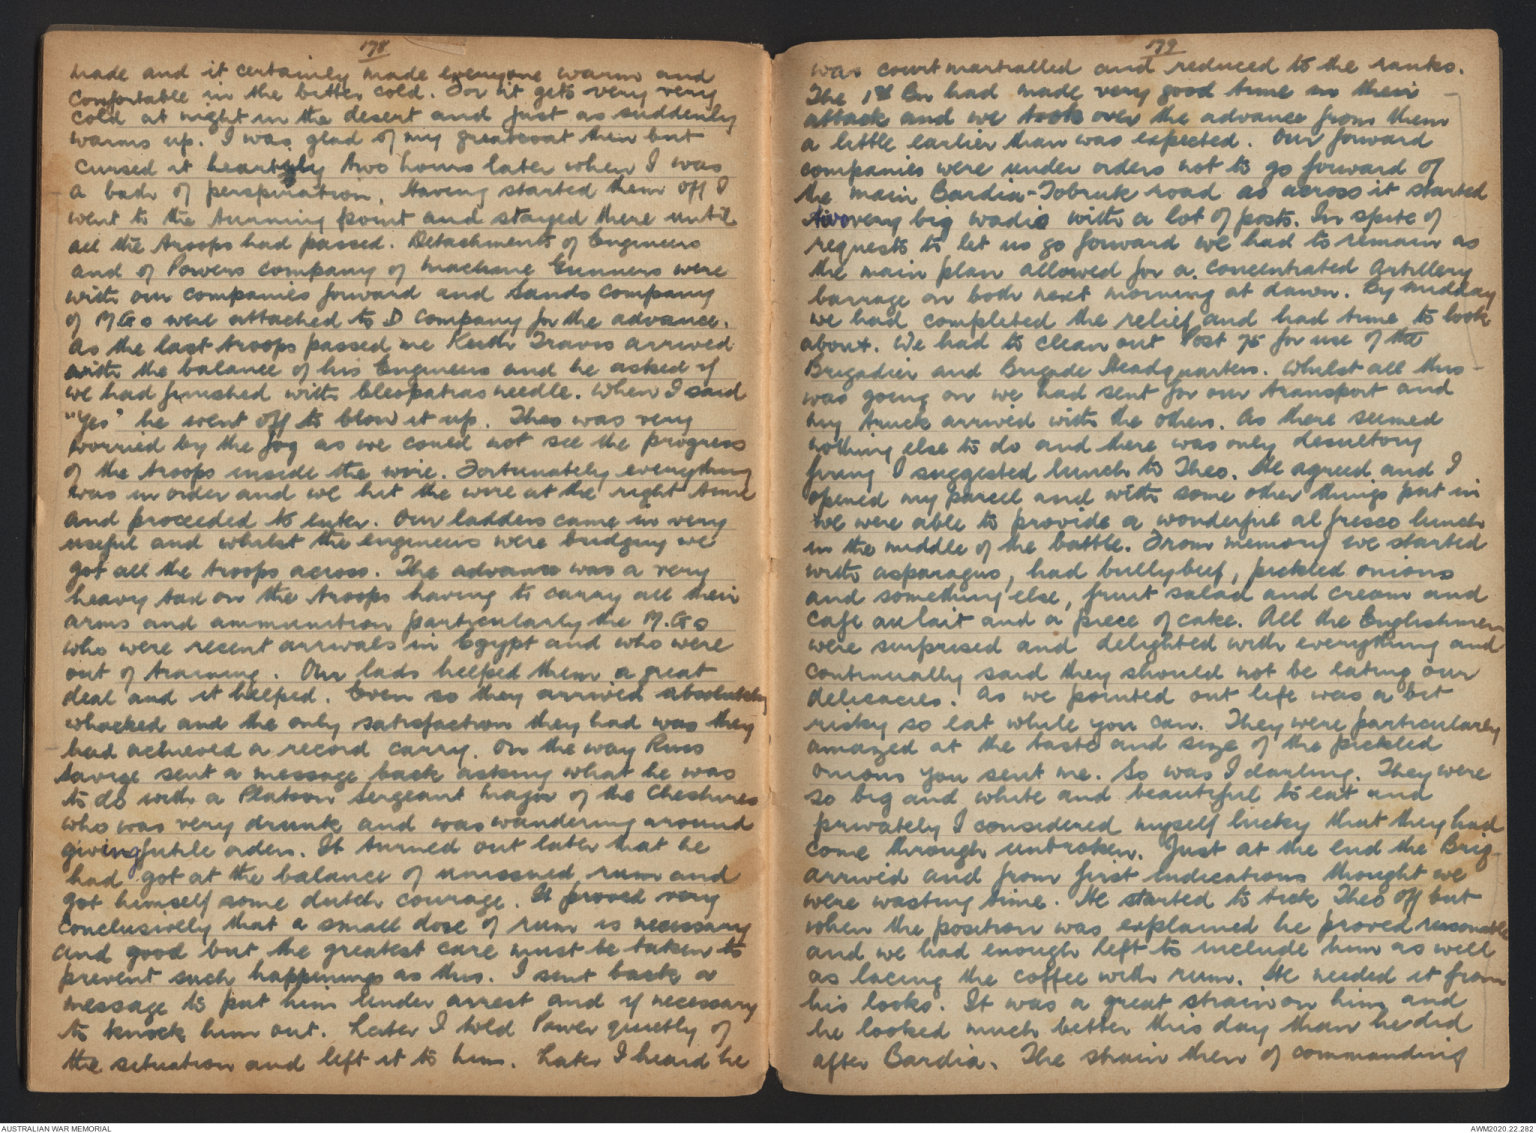 178
made and it certainly made everyone warm and
comfortable in the bitter cold. For it gets very very
cold at night in the desert and just as suddenly
warms up. I was glad of my greatcoat then but
cursed it heartily two hours later when I was
a bath of perspiration. Having started them off I
went to the turning point and stayed there until
all the troops had passed. Detachments of Engineers
and of Powers company of Machine Gunners were
with our companies forward and Sands company
of M.G.s were attached to D Company for the advance.
As the last troops passed me Keith Travis arrived
with the balance of his Engineers and he asked if
we had finished with Cleopatras needle. When I said
"Yes" he went off to blow it up. Theo was very
worried by the fog as we could not see the progress
of the troops inside the wire. Fortunately everything
was in order and we hit the wire at the right time
and proceeded to enter. Our ladders came in very
useful and whilst the engineers were bridging we
got all the troops across. The advance was a very
heavy tax on the troops having to carry all their
arms and ammunition particularly the M.G.s
who were recent arrivals in Egypt and who were
out of training. Our lads helped them a great
deal and it helped. Even so they arrived absolutely
whacked and the only satisfaction they had was they
had achieved a record carry. On the way Russ
Savige sent a message back asking what he was
to do with a Platoon Sergeant Major of the Cheshires
who was very drunk and was wandering around
giving futile orders. It turned out later that he
had got at the balance of unissued rum and
got himself some dutch courage. It proved very
conclusively that a small dose of rum is necessary
and good but the greatest care must be taken to
prevent such happenings as this. I sent back a
message to put him under arrest and if necessary
to knock him out. Later I told Power quietly of
the situation and left it to him. Later I heard he
179
was courtmartialled and reduced to the ranks.
The 1st Bn had made very good time in their
attack and we took over the advance from them
a little earlier than was expected. Our forward
companies were under orders not to go forward of
the main Bardia-Tobruk road as across it started
two very big wadis with a lot of posts. In spite of
requests to let us go forward we had to remain as
the main plan allowed for a concentrated Artillery
barrage on both next morning at dawn. By midday
we had completed the relief and had time to look
about. We had to clean out Post 75 for use of the
Brigadier and Brigade Headquarters. Whilst all this
was going on we had sent for our transport and
my truck arrived with the others. As there seemed
nothing else to do and there was only desultory
firing I suggested lunch to Theo. He agreed and I
opened my parcel and with some other things put in
we were able to provide a wonderful al fresco lunch
in the middle of the battle. From memory we started
with asparagus, had bullybeef, pickled onions
and something else, fruit salad and cream and
cafe au lait and a piece of cake. All the Englishmen
were surprised and delighted with everything and
continually said they should not be eating our
delicacies. As we pointed out life was a bit
risky so eat while you can. They were particularly
amazed at the taste and size of the pickled
onions you sent me. So was I darling. They were
so big and white and beautiful to eat and
privately I considered myself lucky that they had
come through unbroken. Just at the end the Brig
arrived and from first indications thought we
were wasting time. He started to tick Theo off but
when the position was explained he proved reasonable
and we had enough left to include him as well
as lacing the coffee with rum. He needed it from
his looks. It was a great strain on him and
he looked much better this day than he did
after Bardia. The strain then of commanding
AUSTRALIAN WAR MEMORIAL